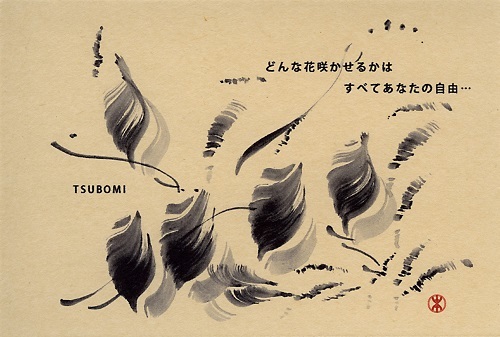 どんな花咲かせるかは
すべてあなたの自由…
TSUBOMI